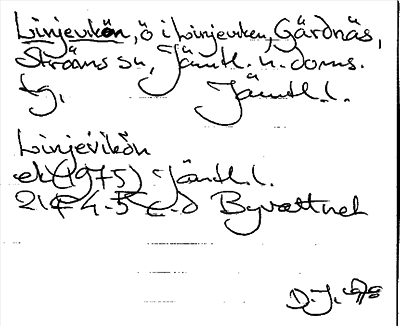 Linjevikön, ö i Linjeviken, Gärdnäs,
Ströms sn, Jämtl. n. doms.
tg. Jämtl. l.
Linjevikön
ek (1975) Jämtl. l.
21F 4-5 c-d Byvattnet
D. J.